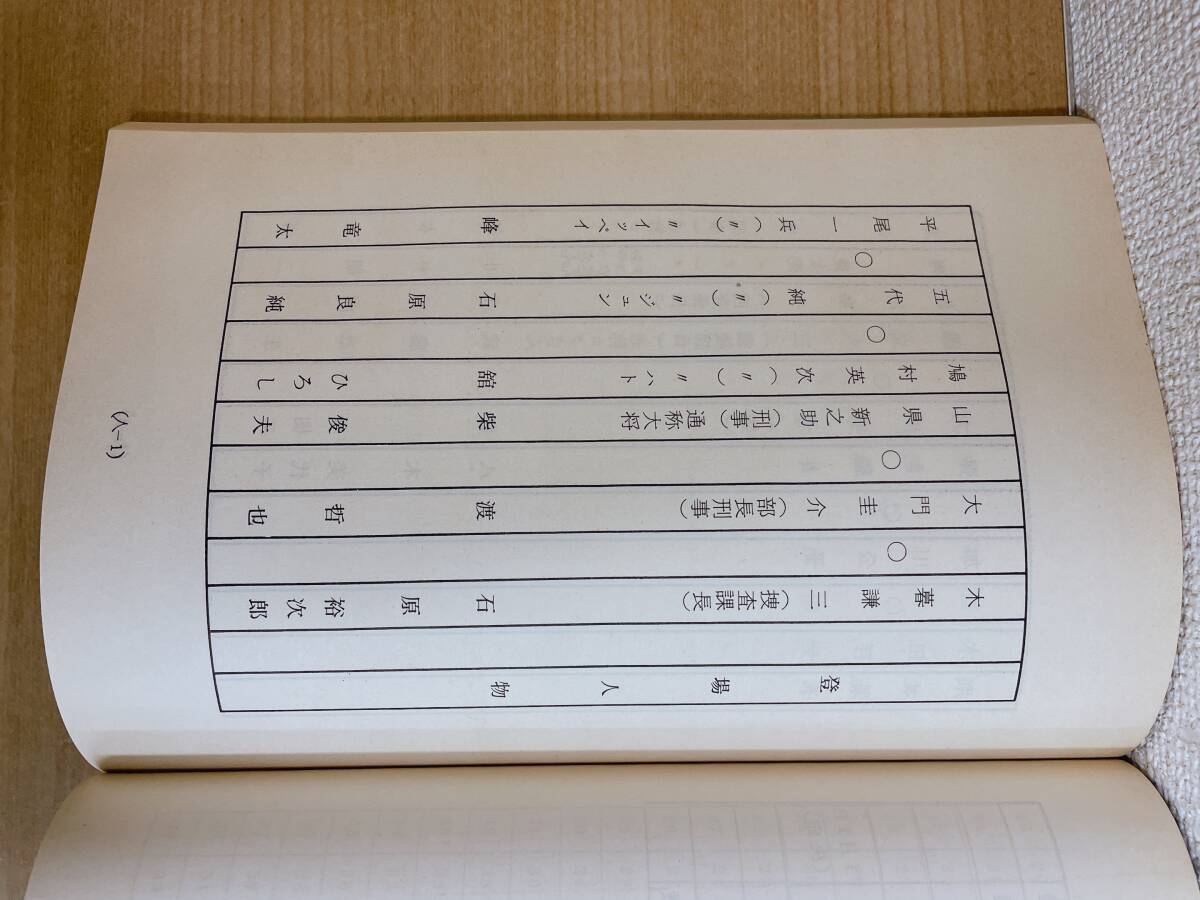 登場人物
木暮謙三(捜査課長) 石原裕次郎
○
大門圭介(部長刑事) 渡哲也
○
山県新之助(刑事)通称大将 柴俊夫
鳩村英次(〃) 〃 ハト 舘ひろし
○
五代純(〃) 〃 ジュン 石原良純
○
平尾一兵(〃) 〃 イッペイ 峰竜太
(人-1)